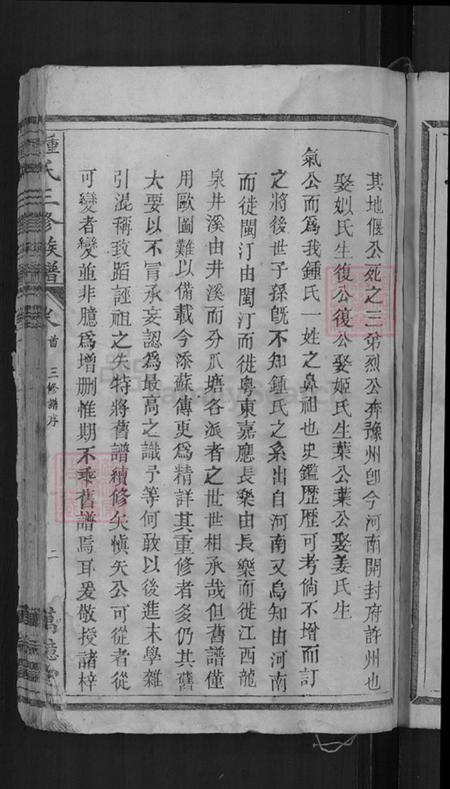 其地偃公死之三弟烈公奔豫州卽今河南開封府許州也
娶姒氏生復公復公娶姬氏生葉公葉公娶姜氏生
氣公而爲我鍾氏一姓之鼻祖也史鑑歷歷可考倘不增而訂
之將後世子孫旣不知鍾氏之系出自河南又烏知由河南
而徙閩汀由閩汀而徙粵東嘉應長樂由長樂而徙江西龍
泉井溪由井溪而分爪塘各派者之世世相承哉但舊譜僅
用歐圖難以備載今添蘇傳更爲精詳其重修者多仍其舊
大要以不冒承妄認爲最高之識予等何敢以後進末學雜
引混稱致蹈誣祖之失特將舊譜續修矢愼矢公可從者從
可變者變並非臆爲增刪惟期不乖舊譜焉耳爰敬授諸梓
鍾氏三修族譜 卷首 三修譜序 二 萬億